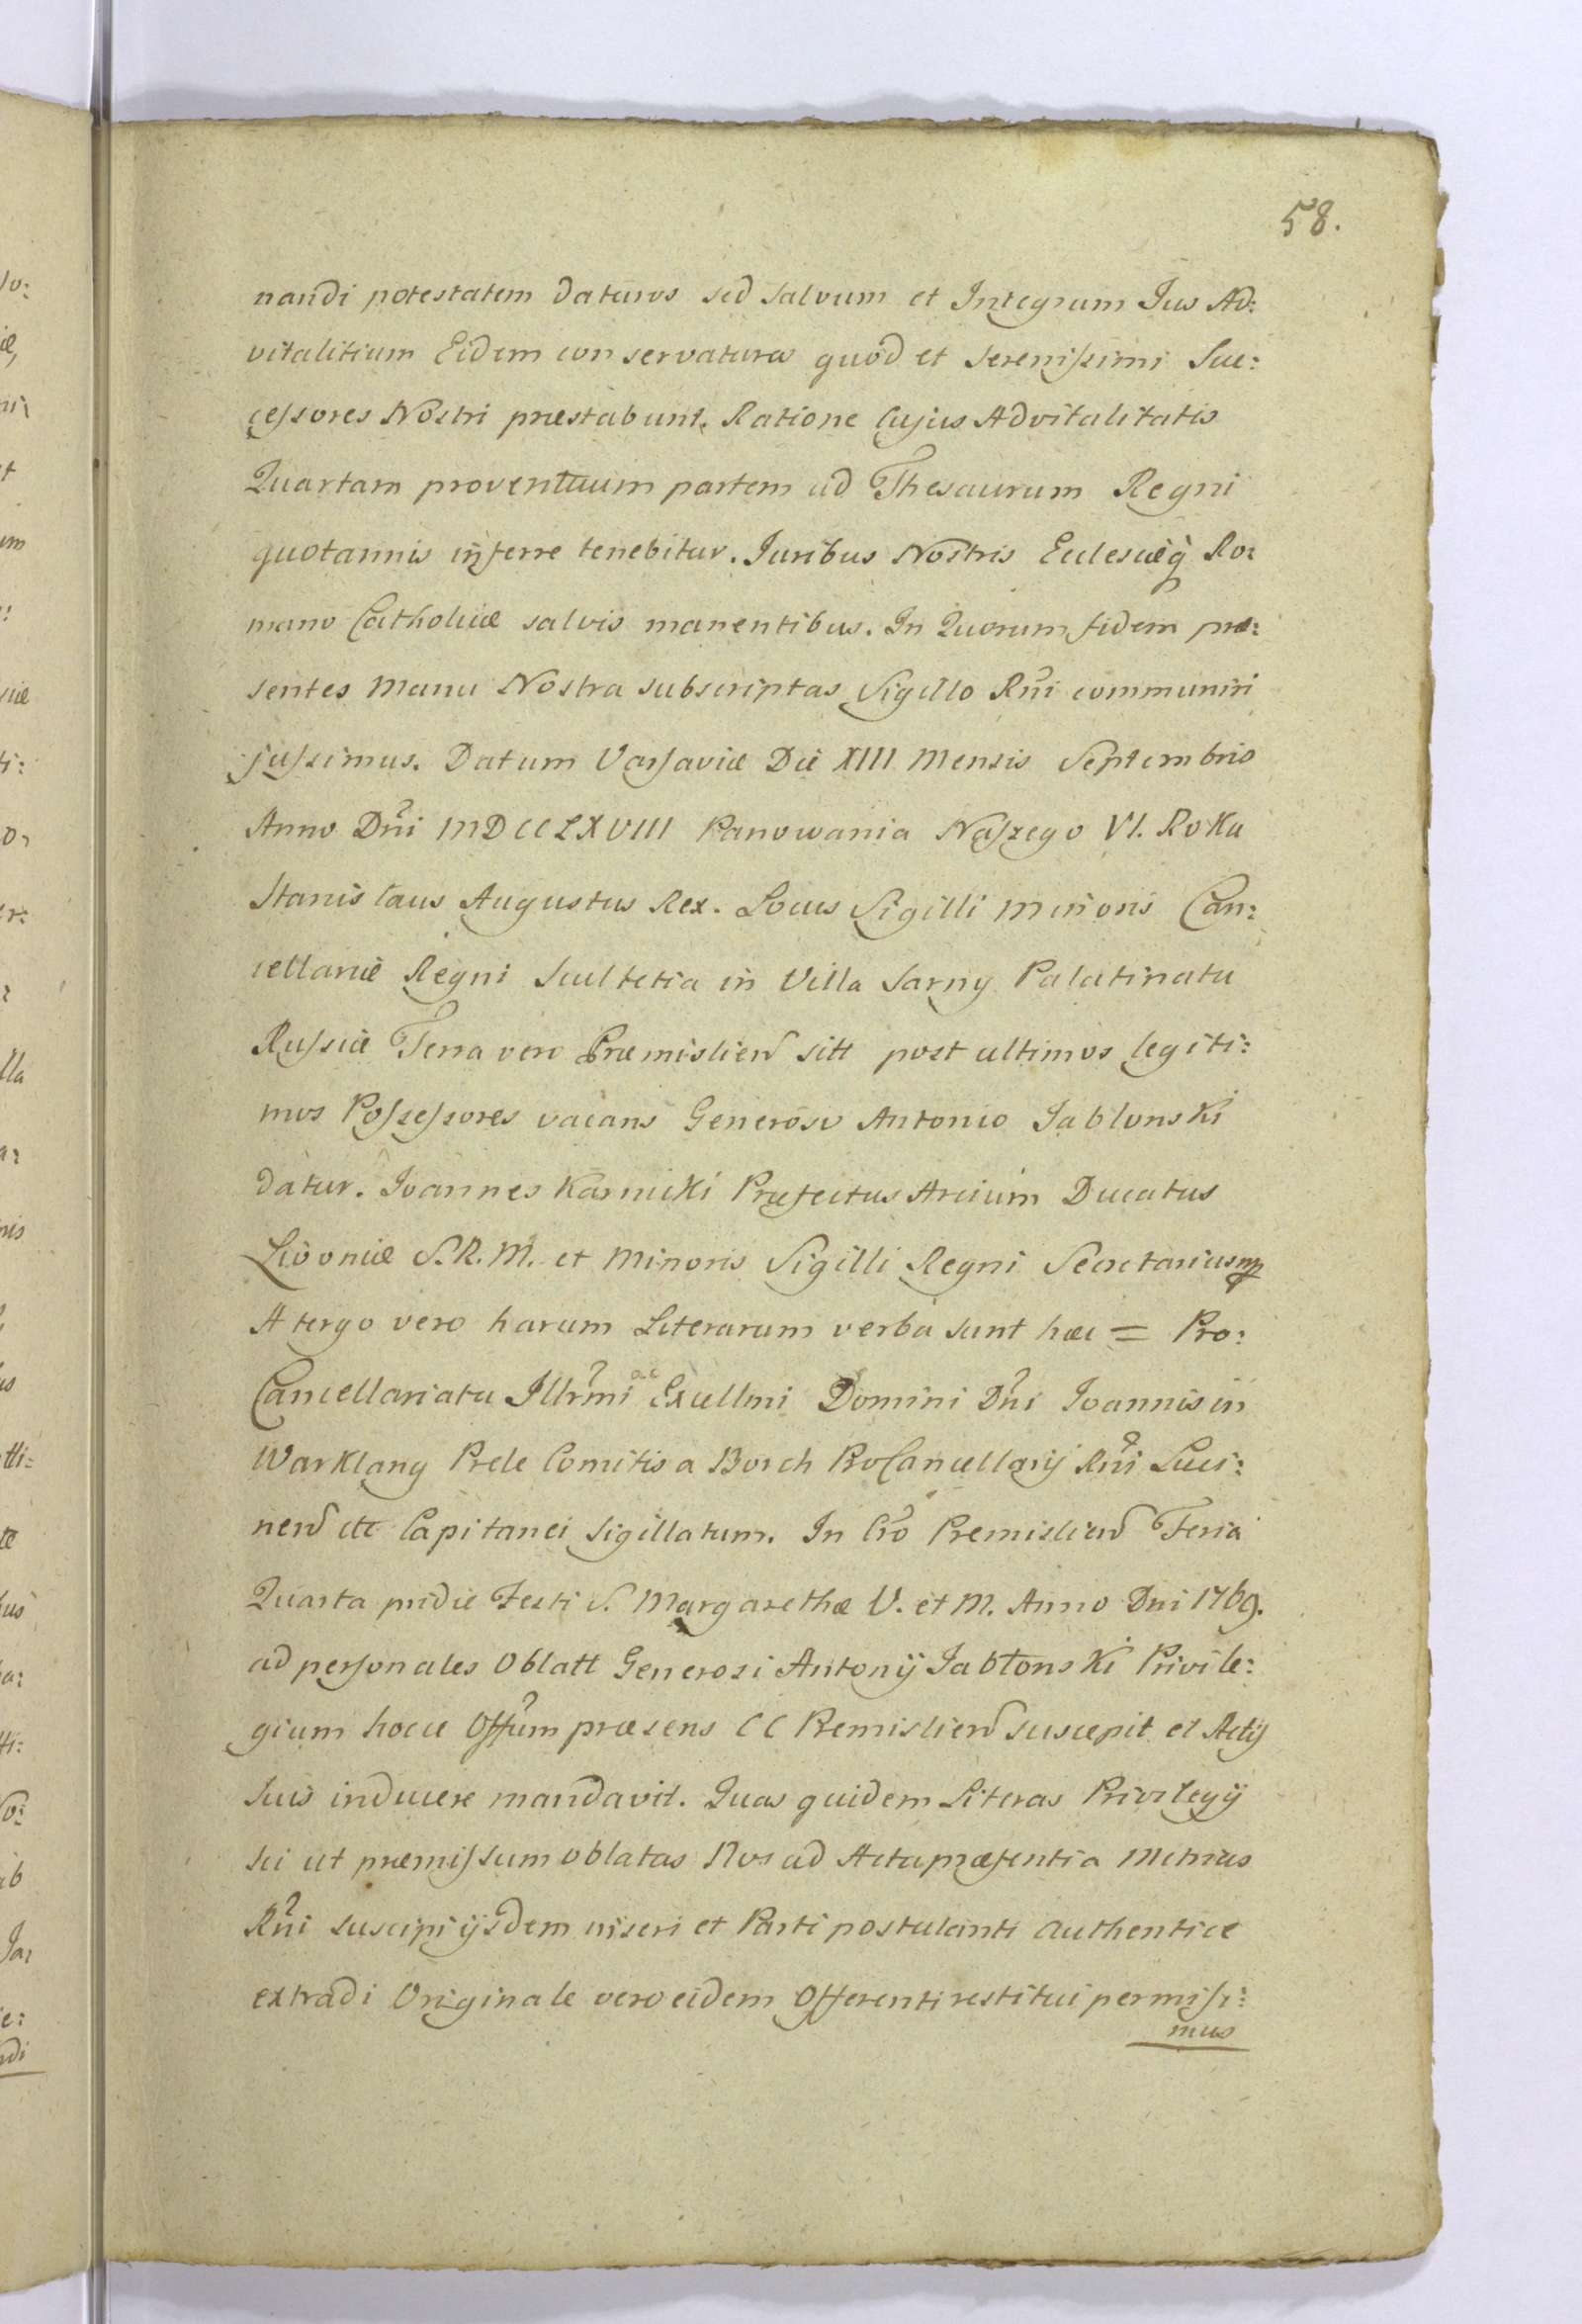 58.
nandi potestatem daturos sed salvum et Integrum Jus Ad:
vitalitium Eidem conservaturos quod et Serenissimi Suc:
cessores Nostri præstabunt. Ratione cujus Advitalitatis
Quartam proventuum partem ad Thesaurum Regni
quotannis inferre tenebitur. Juribus Nostris Ecclesiæq̀ Ro:
mano Catholicæ salvis manentibus. In Quorum fidem præ:
sentes manu Nostra subscriptas Sigillo Rñi communiri
jussimus. Datum Varsaviæ Die XIII Mensis Septembris
Anno Dñi MDCCLXVIII Panowania Naszego VI. Roku
Stanislaus Augustus Rex. Locus Sigilli Minoris Can:
cellariæ Regni Scultetia in Villa Sarny Palatinatu
Russiæ Terra vero Præmislien sitt post ultimos legiti:
mos Possessores vacans Generoso Antonio Jablonski
datur. Joannes Karnicki Præfectus Arcium Ducatus
Livoniæ S.R.M. et Minoris Sigilli Regni Secretarius mp
A tergo vero harum Literarum verba sunt hæc = Pro:
Cancellariatu Illr̃mi ac Excellmi Domini Dñi Joannis in
Warklany Prele Comitis a Borch ProCancellarij Rñi Luci:
nen etc Capitanei Sigillatum. In Cr̃o Premislien Feria
Quarta pridie Festi S. Margarethæ V. et M. Anno Dni 1769.
ad personales Oblatt Generosi Antonij Jabłonski Privile:
gium hocce Offũm præsens CC Premislien suscepit et Actis
suis inducere mandavit. Quas quidem Literas Privilegij
sic ut præmissum oblatas Nos ad Acta præsentia Metrices
Rñi suscipi ijsdem inseri et Parti postulanti authentice
extradi Originale vero eidem Offerenti restitui permisi:
mus